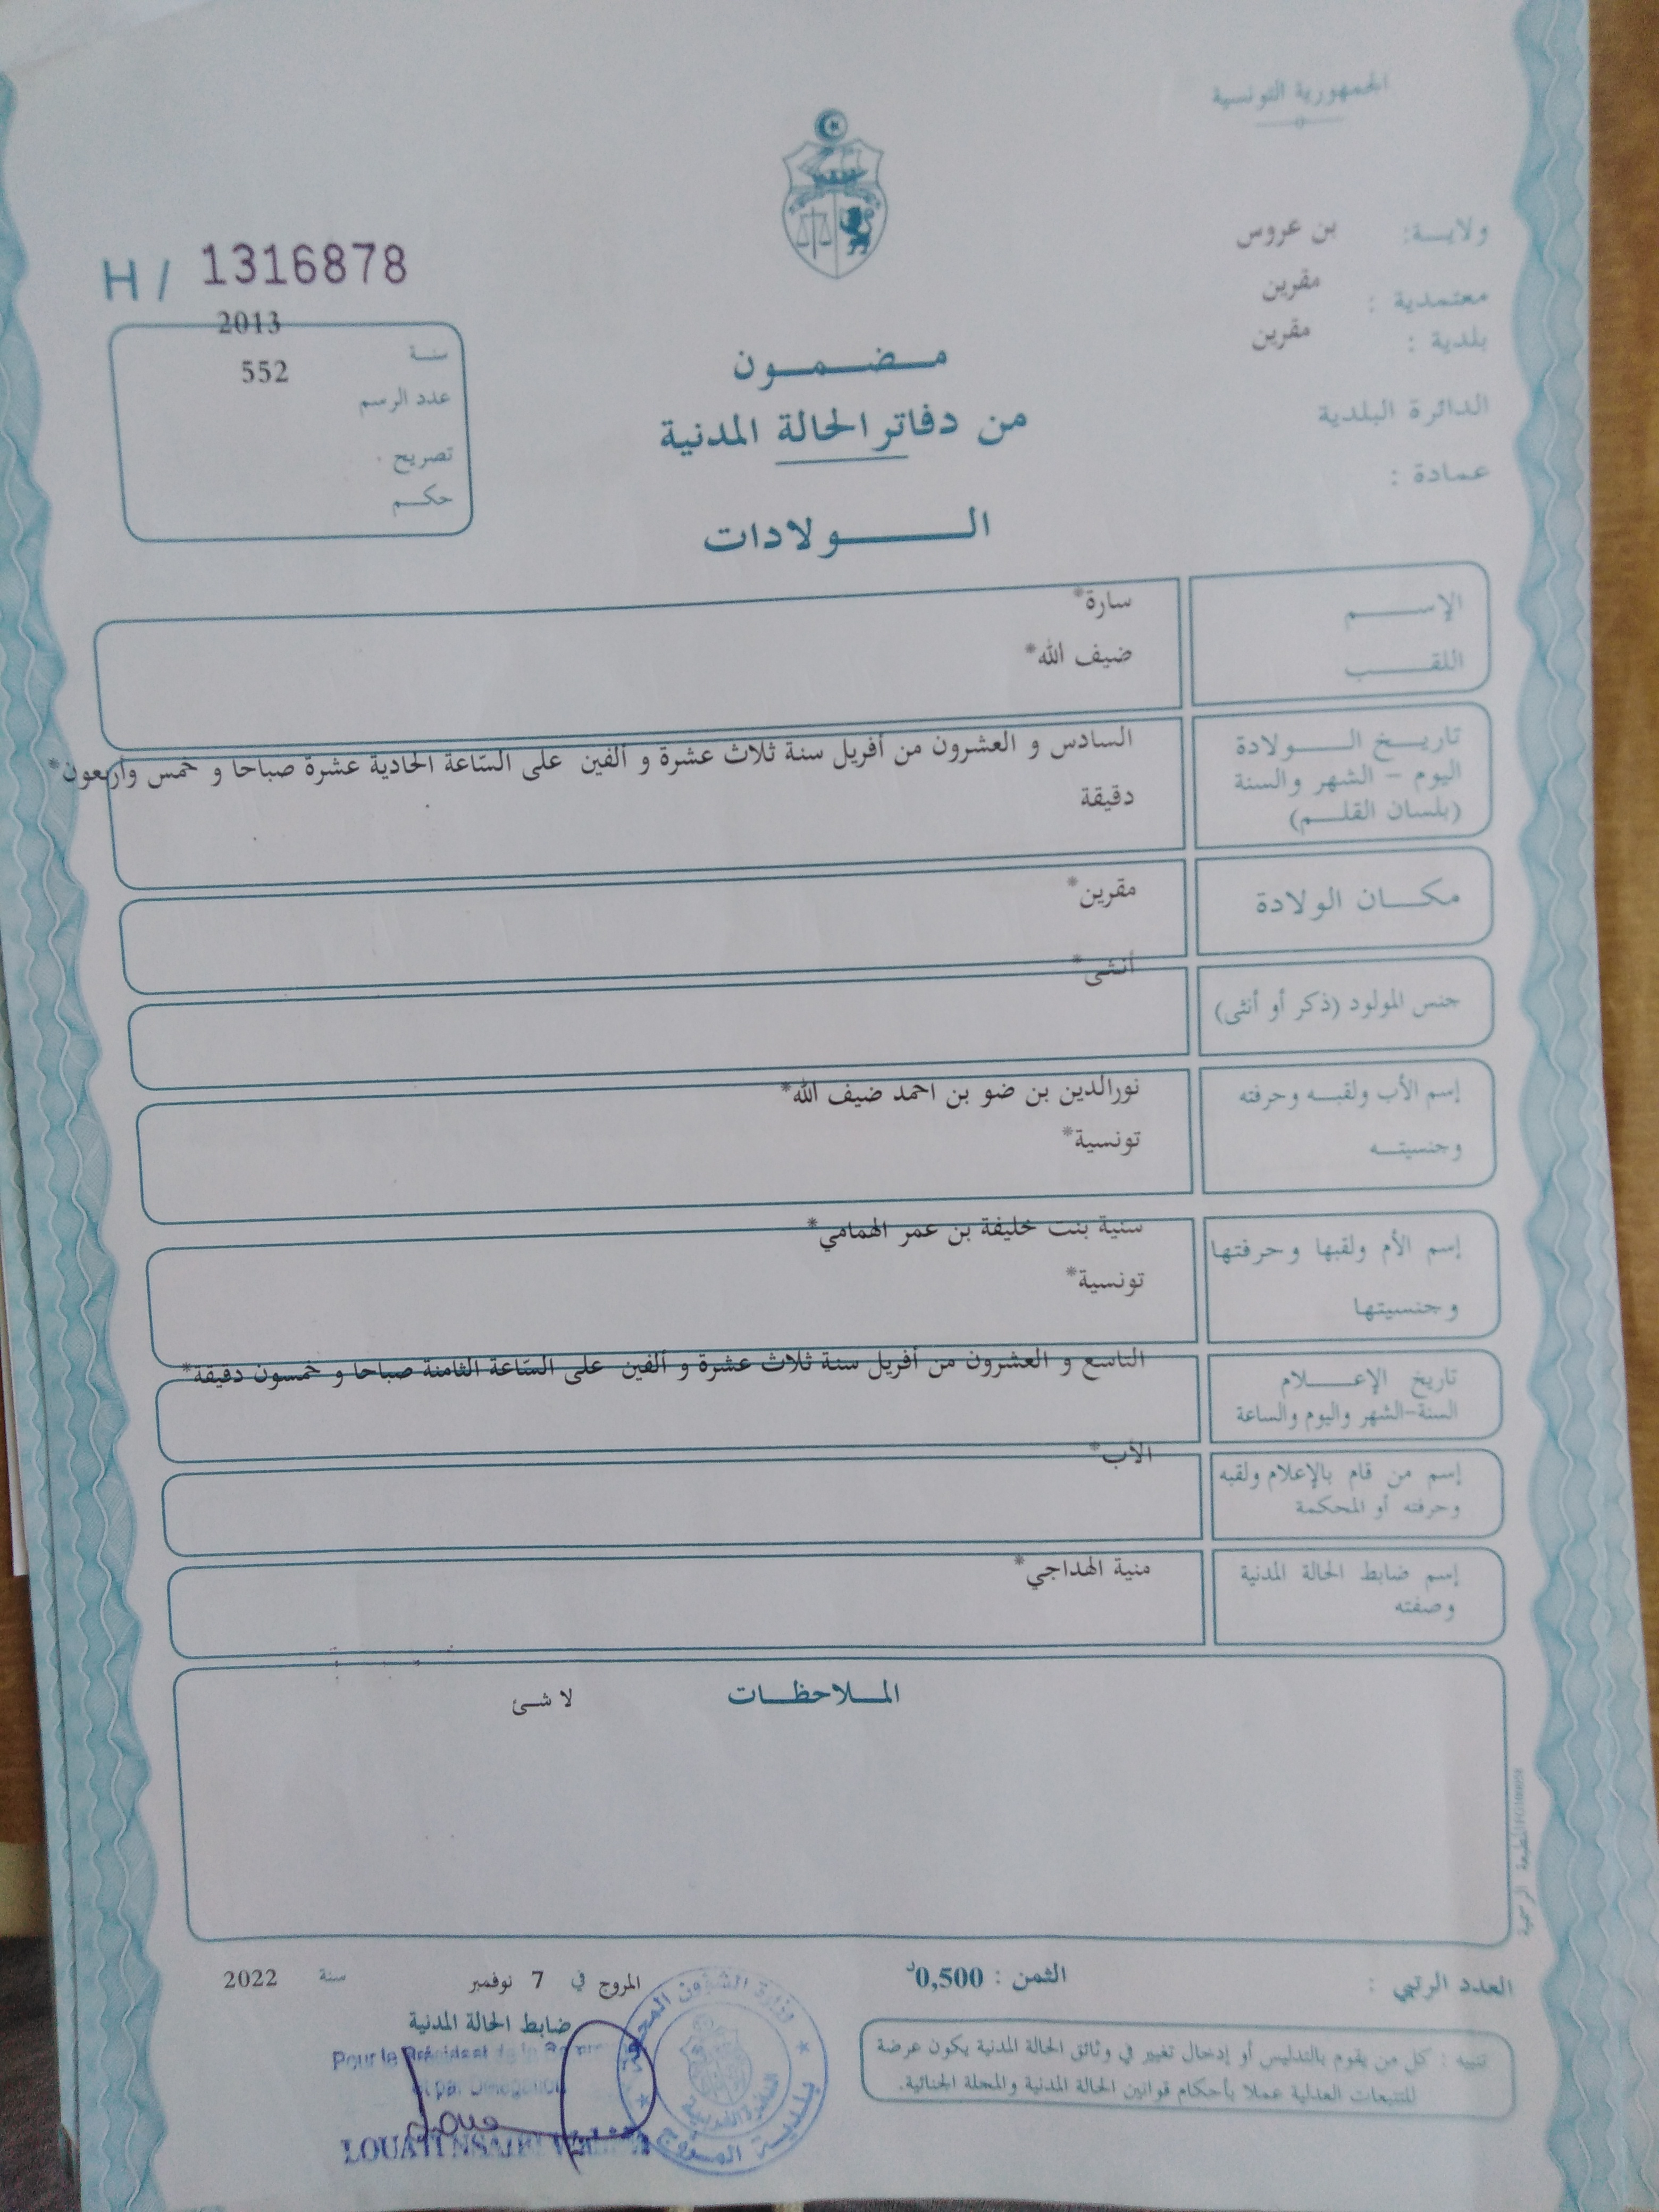 الجمهورية التونسية
ولايـــة: بن عروس
معتمدية : مقرين
بلدية : مقرين
الدائرة البلدية
عمادة :
H / 1316878
2013
سنـة
552
عدد الرسم
تصريح
حكـــم
مـــضـــمـــون
من دفاتر الحالة المدنية
الــــــولادات
الإســـــم سارة*
اللقـــــب ضيف الله*
تاريـــخ الـــــولادة
اليوم - الشهر والسنة
(بلسان القلـــم)
السادس و العشرون من أفريل سنة ثلاث عشرة و ألفين على السّاعة الحادية عشرة صباحا و خمس وأربعون*
دقيقة
مكـــان الولادة مقرين*
جنس المولود (ذكر أو أنثى) أنثى*
إسم الأب ولقبــه وحرفته نورالدين بن ضو بن احمد ضيف الله*
وجنسيتـــه تونسية*
إسم الأم ولقبها وحرفتها سنية بنت خليفة بن عمر الهمامي*
وجنسيتها تونسية*
تاريخ الإعـــــلام
السنة-الشهر واليوم والساعة
التاسع و العشرون من أفريل سنة ثلاث عشرة و ألفين على السّاعة الثامنة صباحا و خمسون دقيقة*
إسم من قام بالإعلام ولقبه
وحرفته أو المحكمة
الأب*
إسم ضابط الحالة المدنية
وصفته
منية الهداجي*
المـــلاحظـــات
لا شئ
المطبعة الرسمية
العدد الرتبي :
الثمن : 0,500د
المروج في 7 نوفمبر سنة 2022
ضابط الحالة المدنية
Pour le Président de la
et par Délégation
وزارة الشؤون المحلية
بلديــة المـروج
تنبيه : كل من يقوم بالتدليس أو إدخال تغيير في وثائق الحالة المدنية يكون عرضة
للتتبعات العدلية عملا بأحكام قوانين الحالة المدنية والمجلة الجنائية.